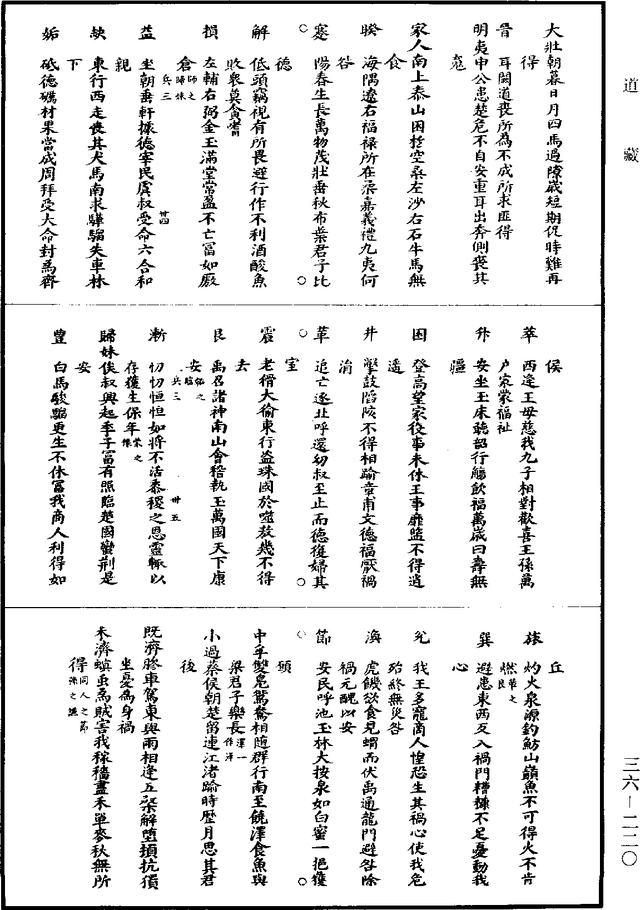 道藏
大壯朝暮日月四馬過隙歲短期促時難再
得
晉　耳闕道喪所為不成所求匪得
明夷申公患楚危不自安重耳出奔側喪其
魂
家人南上泰山困於空桑左沙右石牛馬無
食
睽　海隅遼右福祿所在柔嘉義禮九夷何
咎
蹇　陽春生長萬物茂壯垂枝布葉君子比
德
解　低頭竊視有所畏避行作不利酒酸魚
敗眾莫貪嗜
損　左輔右弼金玉滿堂常盈不亡富如厫
倉師之歸妹
兵三　廿四
益　坐朝垂軒據德宰民虞叔受命六合和
親
夬　東行西走喪其犬馬南求驊騮失車林
下
姤　砥德礪材果當成周拜受大命封為齊
侯
萃　西逢王母慈我九子相對歡喜王孫萬
戶家蒙福祉
升　安坐玉床聽韶行觴飲福萬歲曰壽無
疆
困　登高望家役事未休王事靡盬不得逍
遙
井　擊鼓陷陵不得相踰章甫文德福厭禍
消
革　追亡逐北呼還幼叔至止而德復歸其
室
震　老猾大偷東行盜珠困於噬敖幾不得
去
艮　禹召諸神南山會稽執玉萬國天下康
安師之臨
兵三　廿五
漸　忉忉怛怛如將不活黍稷之恩靈輒以
存獲生保年
歸妹侯叔興起季子富有照臨楚國蠻荊是
安
豐　白馬騮更生不休富我商人利得如
丘
旅　灼火泉源釣魴山巔魚不可得火不肯
然
巽　避患東西反入禍門糟糠不足憂動我
心
兌　我王多寵商人惶恐生其禍心使我危
殆終無災咎
渙　虎饑欲食見蝟而伏禹通龍門避咎除
禍元醜以安
節　安民呼池玉杯大按泉如白蜜一邑獲
願
中孚雙鳧鴛鴦相隨群行南至饒澤食魚與
梁君子樂長
小過蔡侯朝楚留連江渚踰時歷月思其君
后
既濟膠車駕東與雨相逢五楘解墮頓抗獨
坐憂為身禍
未濟螟虫為賊害我稼穡盡禾單麥秋無所
得同人之節
三六—二二〇